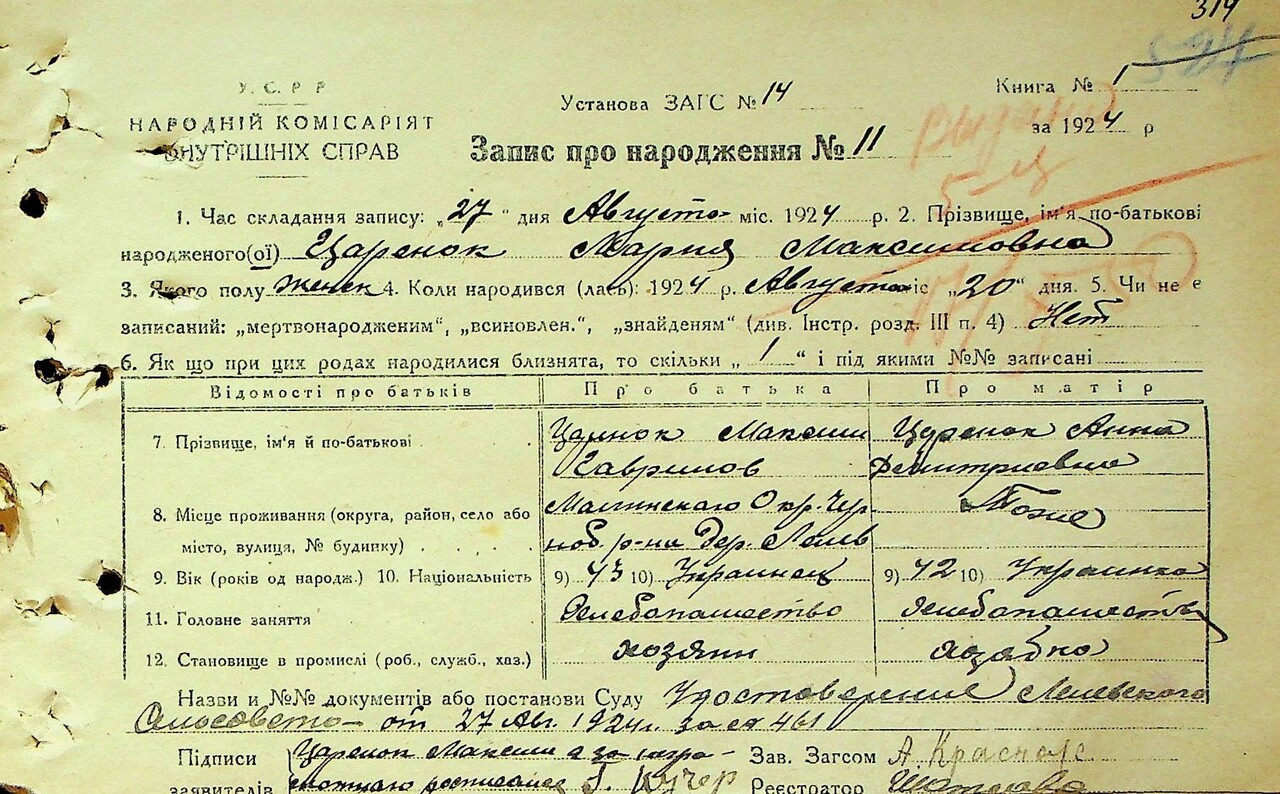 319
У. С. Р. Р
НАРОДНІЙ КОМІСАРІЯТ
ВНУТРІШНІХ СПРАВ
Установа ЗАГС № 14
Книга № 1
за 1924 р
Запис про народження № 11
1. Час складання запису: „27“ дня Августа міс. 1924 р. 2. Прізвище, ім'я, по-батькові
народженого(ої) Царенок Мария Максимовна
3. Якого полу женск 4. Коли народився (лась): 1924 р. Августа міс „20“ дня. 5. Чи не є
записаний: „мертвонародженим“, „всиновлен.“, „знайденям“ (див. Інстр. розд. III п. 4) Нет
6. Як що при цих родах народилися близнята, то скільки „1“ і під якими №№ записані
Відомості про батьків Про батька Про матір
7. Прізвище, ім'я й по-батькові Максим Царенок Анна
Гаврилов Демитриевна
8. Місце проживання (округа, район, село або Малинскаго Окр. Чер Тоже
місто, вулиця, № будинку) ноб. р-на Дер. Лелев
9. Вік (років од народж.) 10. Національність 9) 43 10) Украинец 9) 42 10) Украинка
11. Головне заняття Хлебопашество Хлебопашество
12. Становище в промислі (роб., служб., хаз.) хозяин
Назви и №№ документів або постанови Суду Удостоверение Лелевского
Сельсовета от 27 Авг. 1924г. за № 461
Підписи Царенок Максим а за негра-
заявителів мотнаго росписался Кучер
Зав. Загсом
Реєстратор